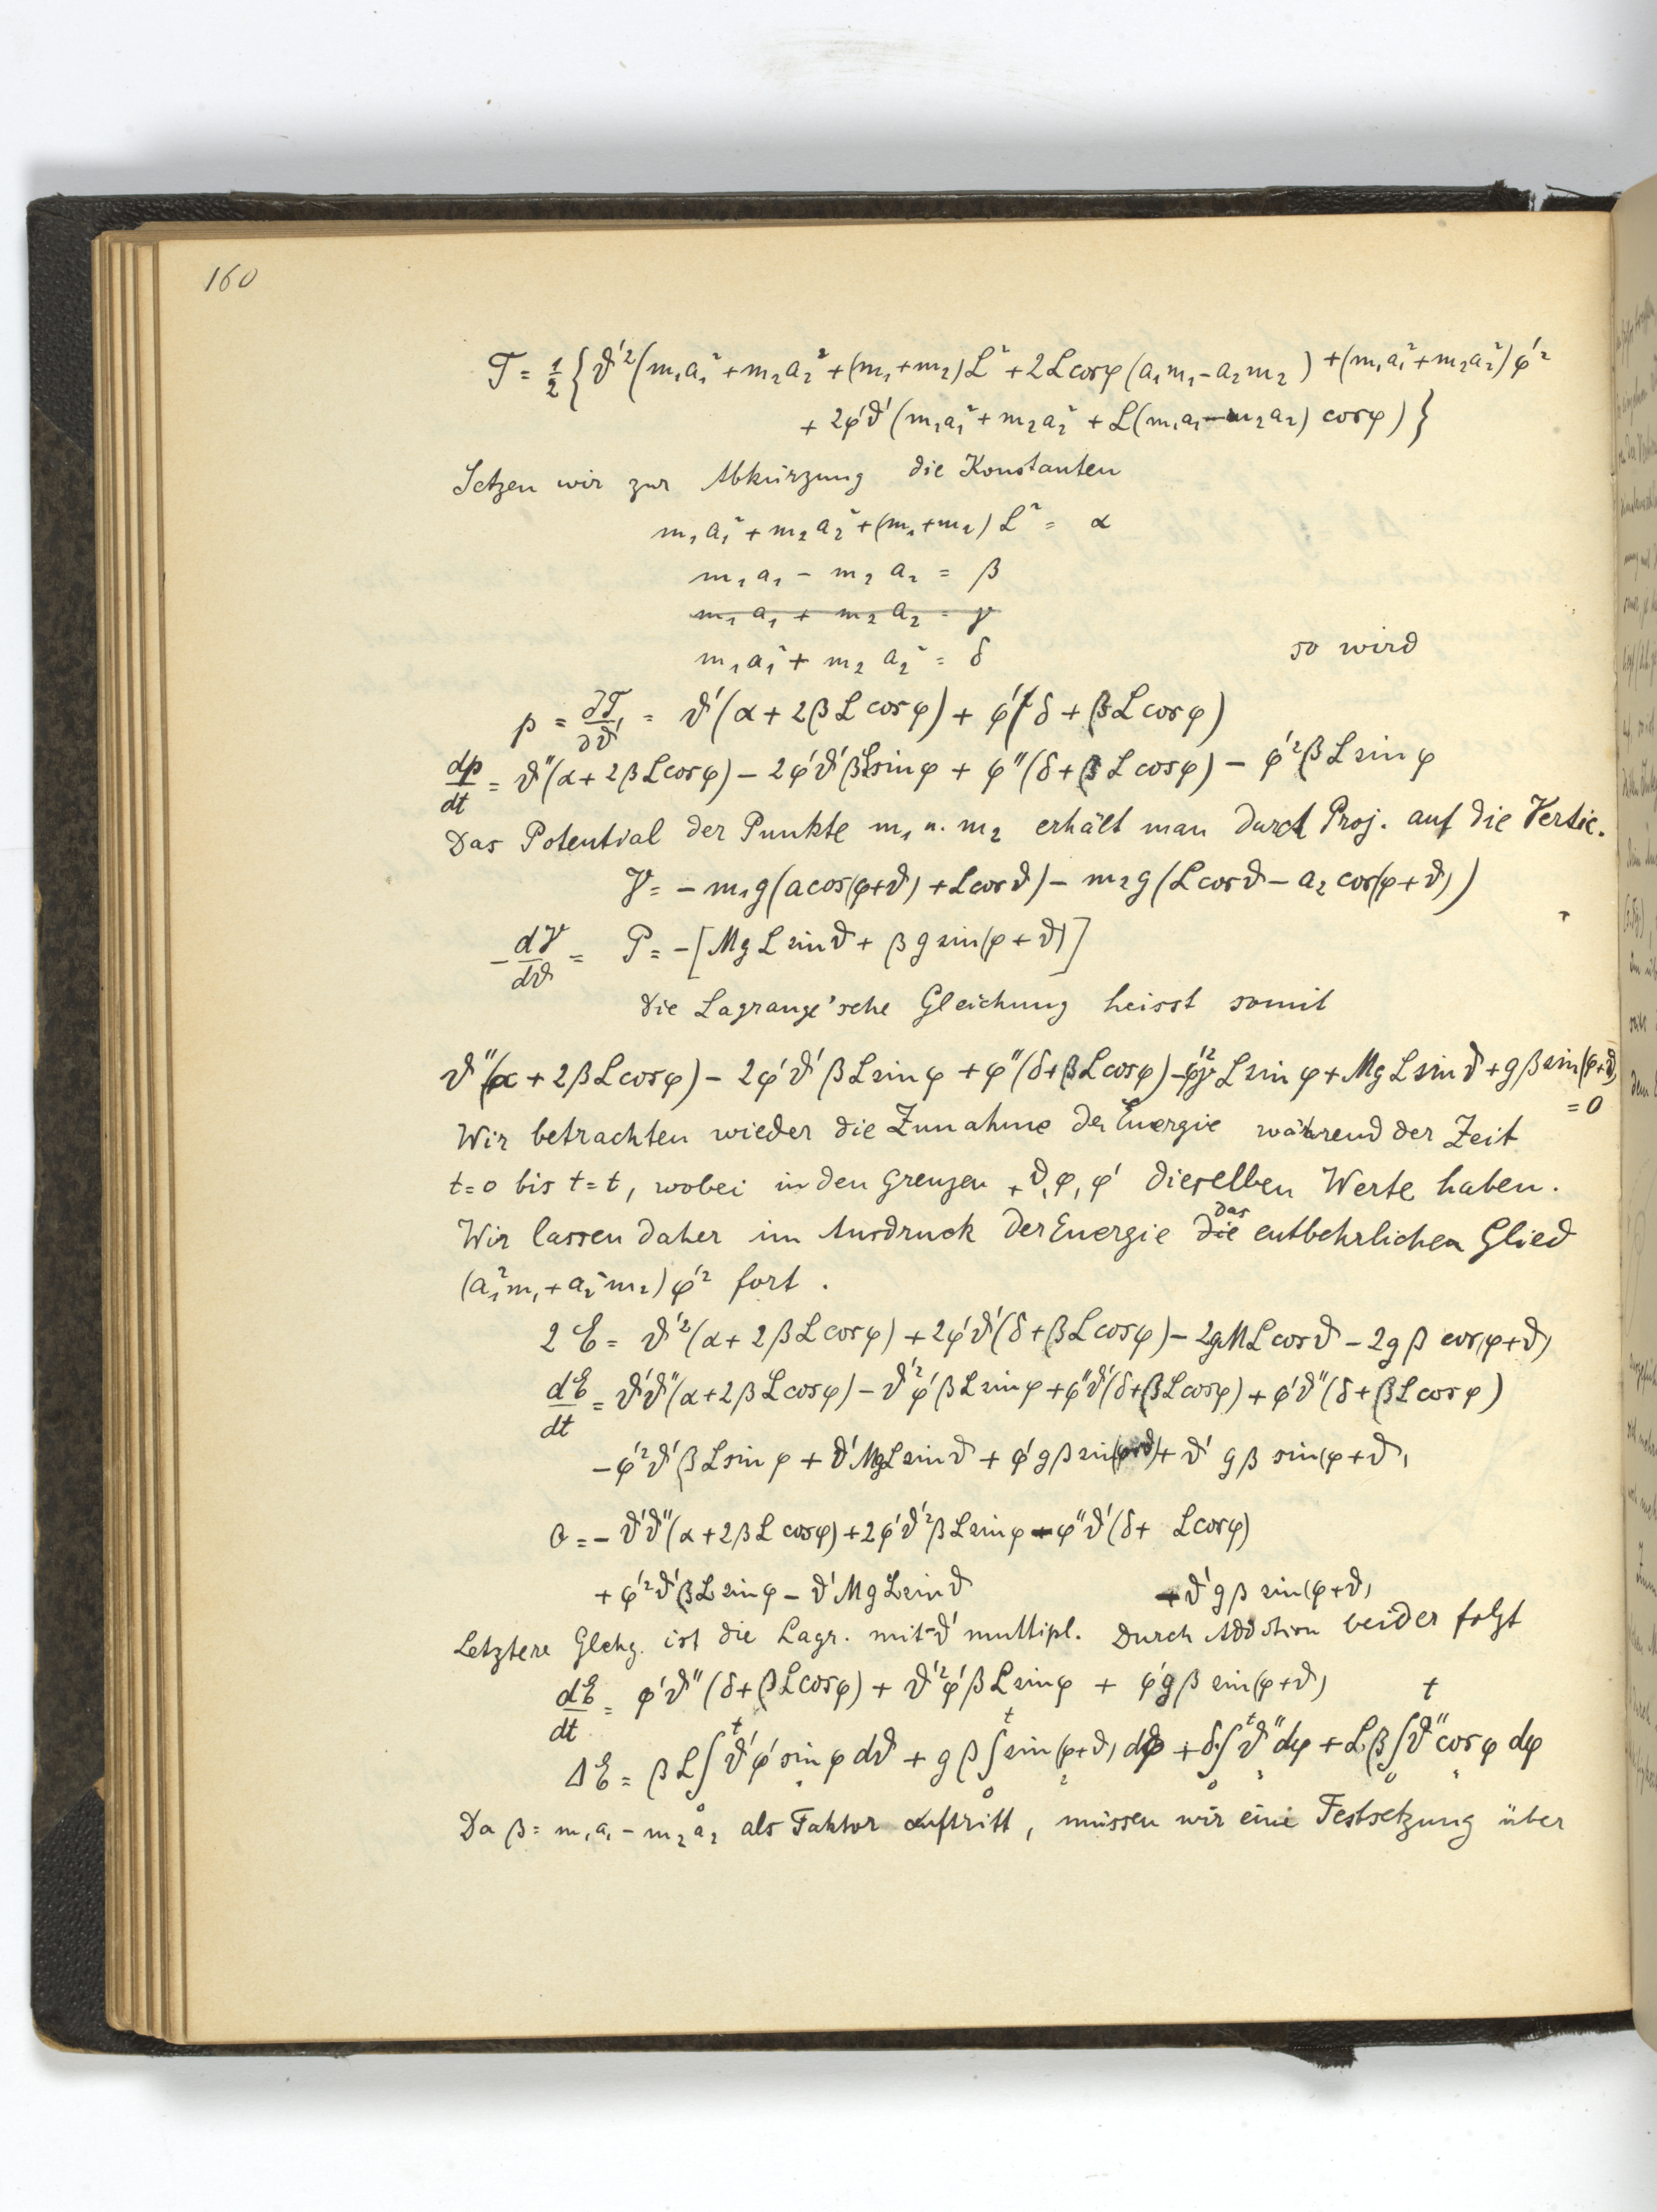 160
T = ½ { ϑ'² (m₁a₁² + m₂a₂² + (m₁+m₂)L² + 2L cos φ (a₁m₁ - a₂m₂) + (m₁a₁² + m₂a₂²) φ'²
+ 2φ'ϑ' (m₁a₁² + m₂a₂² + L(m₁a₁ - m₂a₂) cos φ) }
Setzen wir zur Abkürzung die Konstanten
m₁a₁² + m₂a₂² + (m₁+m₂) L² = α
m₁a₁ - m₂a₂ = β
m₁a₁ + m₂a₂ = γ
m₁a₁² + m₂a₂² = δ so wird
p = ∂T/∂ϑ' = ϑ'(α + 2βL cos φ) + φ'(δ + βL cos φ)
dp/dt = ϑ''(α + 2βL cos φ) - 2φ'ϑ'βL sin φ + φ''(δ + βL cos φ) - φ'²βL sin φ
Das Potential der Punkte m₁ u. m₂ erhält man durch Proj. auf die Vertic.
V = - m₁g(a cos(φ+ϑ) + L cos ϑ) - m₂g(L cos ϑ - a₂ cos(φ+ϑ))
- dV/dϑ = P = -[MgL sin ϑ + βg sin(φ+ϑ)]
Die Lagrange'sche Gleichung heisst somit
ϑ''(α + 2βL cos φ) - 2φ'ϑ'βL sin φ + φ''(δ + βL cos φ) - φ'²γL sin φ + MgL sin ϑ + gβ sin(φ+ϑ)
= 0
Wir betrachten wieder die Zunahme der Energie während der Zeit
t=0 bis t=t, wobei in den Grenzen ϑ, φ, φ' dieselben Werte haben.
das
Wir lassen daher im Ausdruck der Energie die entbehrlichen Glied
(a₁²m₁ + a₂²m₂) φ'² fort.
2E = ϑ'²(α + 2βL cos φ) + 2φ'ϑ'(δ + βL cos φ) - 2gML cos ϑ - 2gβ cos(φ+ϑ)
dE/dt = ϑ'ϑ''(α + 2βL cos φ) - ϑ'²φ'βL sin φ + φ''ϑ'(δ + βL cos φ) + φ'ϑ''(δ + βL cos φ)
- φ'²ϑ'βL sin φ + ϑ'MgL sin ϑ + φ'gβ sin(φ+ϑ) + ϑ' gβ sin(φ+ϑ)
0 = - ϑ'ϑ''(α + 2βL cos φ) + 2φ'ϑ'²βL sin φ - φ''ϑ'(δ + L cos φ)
+ φ'²ϑ'βL sin φ - ϑ'MgL sin ϑ - ϑ'gβ sin(φ+ϑ)
Letztere Glchg. ist die Lagr. mit -ϑ' multipl. Durch Addition beider folgt
dE/dt = φ'ϑ''(δ + βL cos φ) + ϑ'²φ'βL sin φ + φ'gβ sin(φ+ϑ)
ΔE = βL ∫₀ᵗ ϑ'φ' sin φ dϑ + gβ ∫₀ᵗ sin(φ+ϑ) dφ + δ ∫₀ᵗ ϑ'' dφ + Lβ ∫₀ᵗ ϑ'' cos φ dφ
Da β = m₁a₁ - m₂a₂ als Faktor auftritt, müssen wir eine Festsetzung über